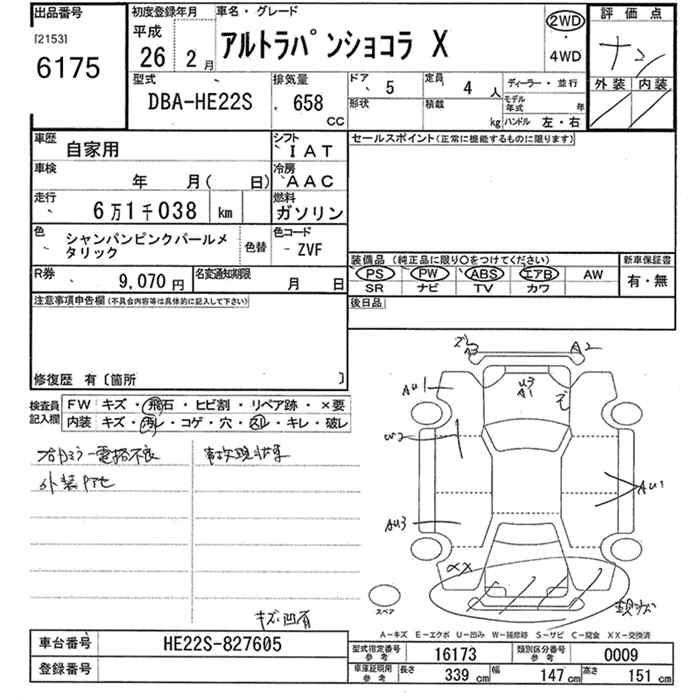 出品番号
[2153]
6175
初度登録年月
平成
26 2月
車名・グレード
アルトラパンショコラ X
2WD
・
4WD
評価点
外装 内装
型式
DBA-HE22S
排気量
658
CC
ドア 5
定員 4 人
形状
積載 kg
ディーラー・並行
モデル年式 年
ハンドル 左・右
車歴
自家用
シフト
IAT
車検
年 月( 日)
冷房
AAC
走行
6万1千038 km
燃料
ガソリン
色
シャンパンピンクパールメタリック
色替
色コード
ZVF
R券
9,070円
名変通知期限
月 日
セールスポイント(正常に機能するものに限ります)
装備品(純正品に限り○をつけてください)
PS PW ABS エアB AW
SR ナビ TV カワ
新車保証書
有・無
後日品
注意事項申告欄(不具合内容等は具体的に記入して下さい)
修復歴 有〔箇所 〕
検査員記入欄
FW キズ・飛石・ヒビ割・リペア跡・×要
内装 キズ・汚レ・コゲ・穴・スレ・キレ・破レ
外装
A2
AU1
U3
A1
W2
AU1
AU3
XX
スペア
キズ・凹有
A−キズ E−エクボ U−凹み W−補修跡 S−サビ C−腐食 XX−交換済
車台番号
HE22S-827605
登録番号
型式指定番号 参考
16173
類別区分番号 参考
0009
車庫証明用 参考
長さ 339 cm
幅 147 cm
高さ 151 cm